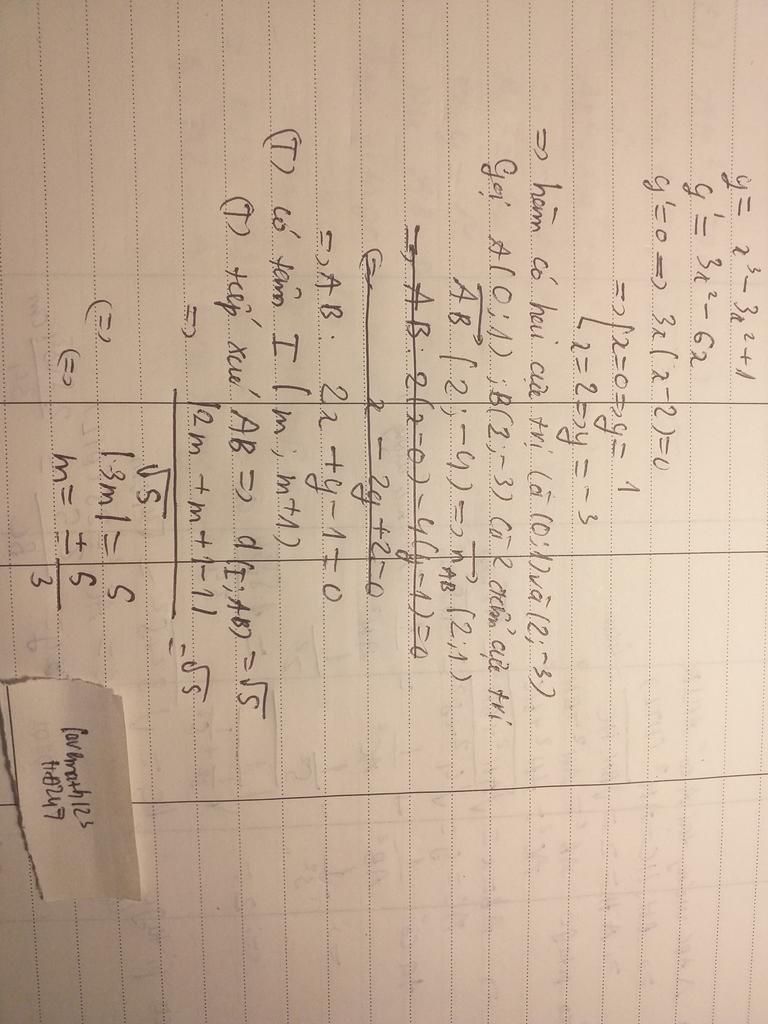 y = x³ - 3x² + 1
y' = 3x² - 6x
y' = 0 => 3x(x-2) = 0
=> [x = 0 => y = 1
x = 2 => y = -3
=> hàm có hai cực trị là (0;1) và (2;-3)
Gọi A(0;1); B(2;-3) là 2 điểm cực trị
AB (2;-4) => n AB (2;1)
=> AB: 2(x-0) - 4(y-1) = 0
<=> x - 2y + 2 = 0
=> AB: 2x + y - 1 = 0
(T) có tâm I (m; m+1)
(T) tiếp xúc AB => d(I;AB) = √5
=> |2m + m + 1 - 1| / √5 = √5
<=> |3m| = 5
<=> m = ± 5/3
lovemath123